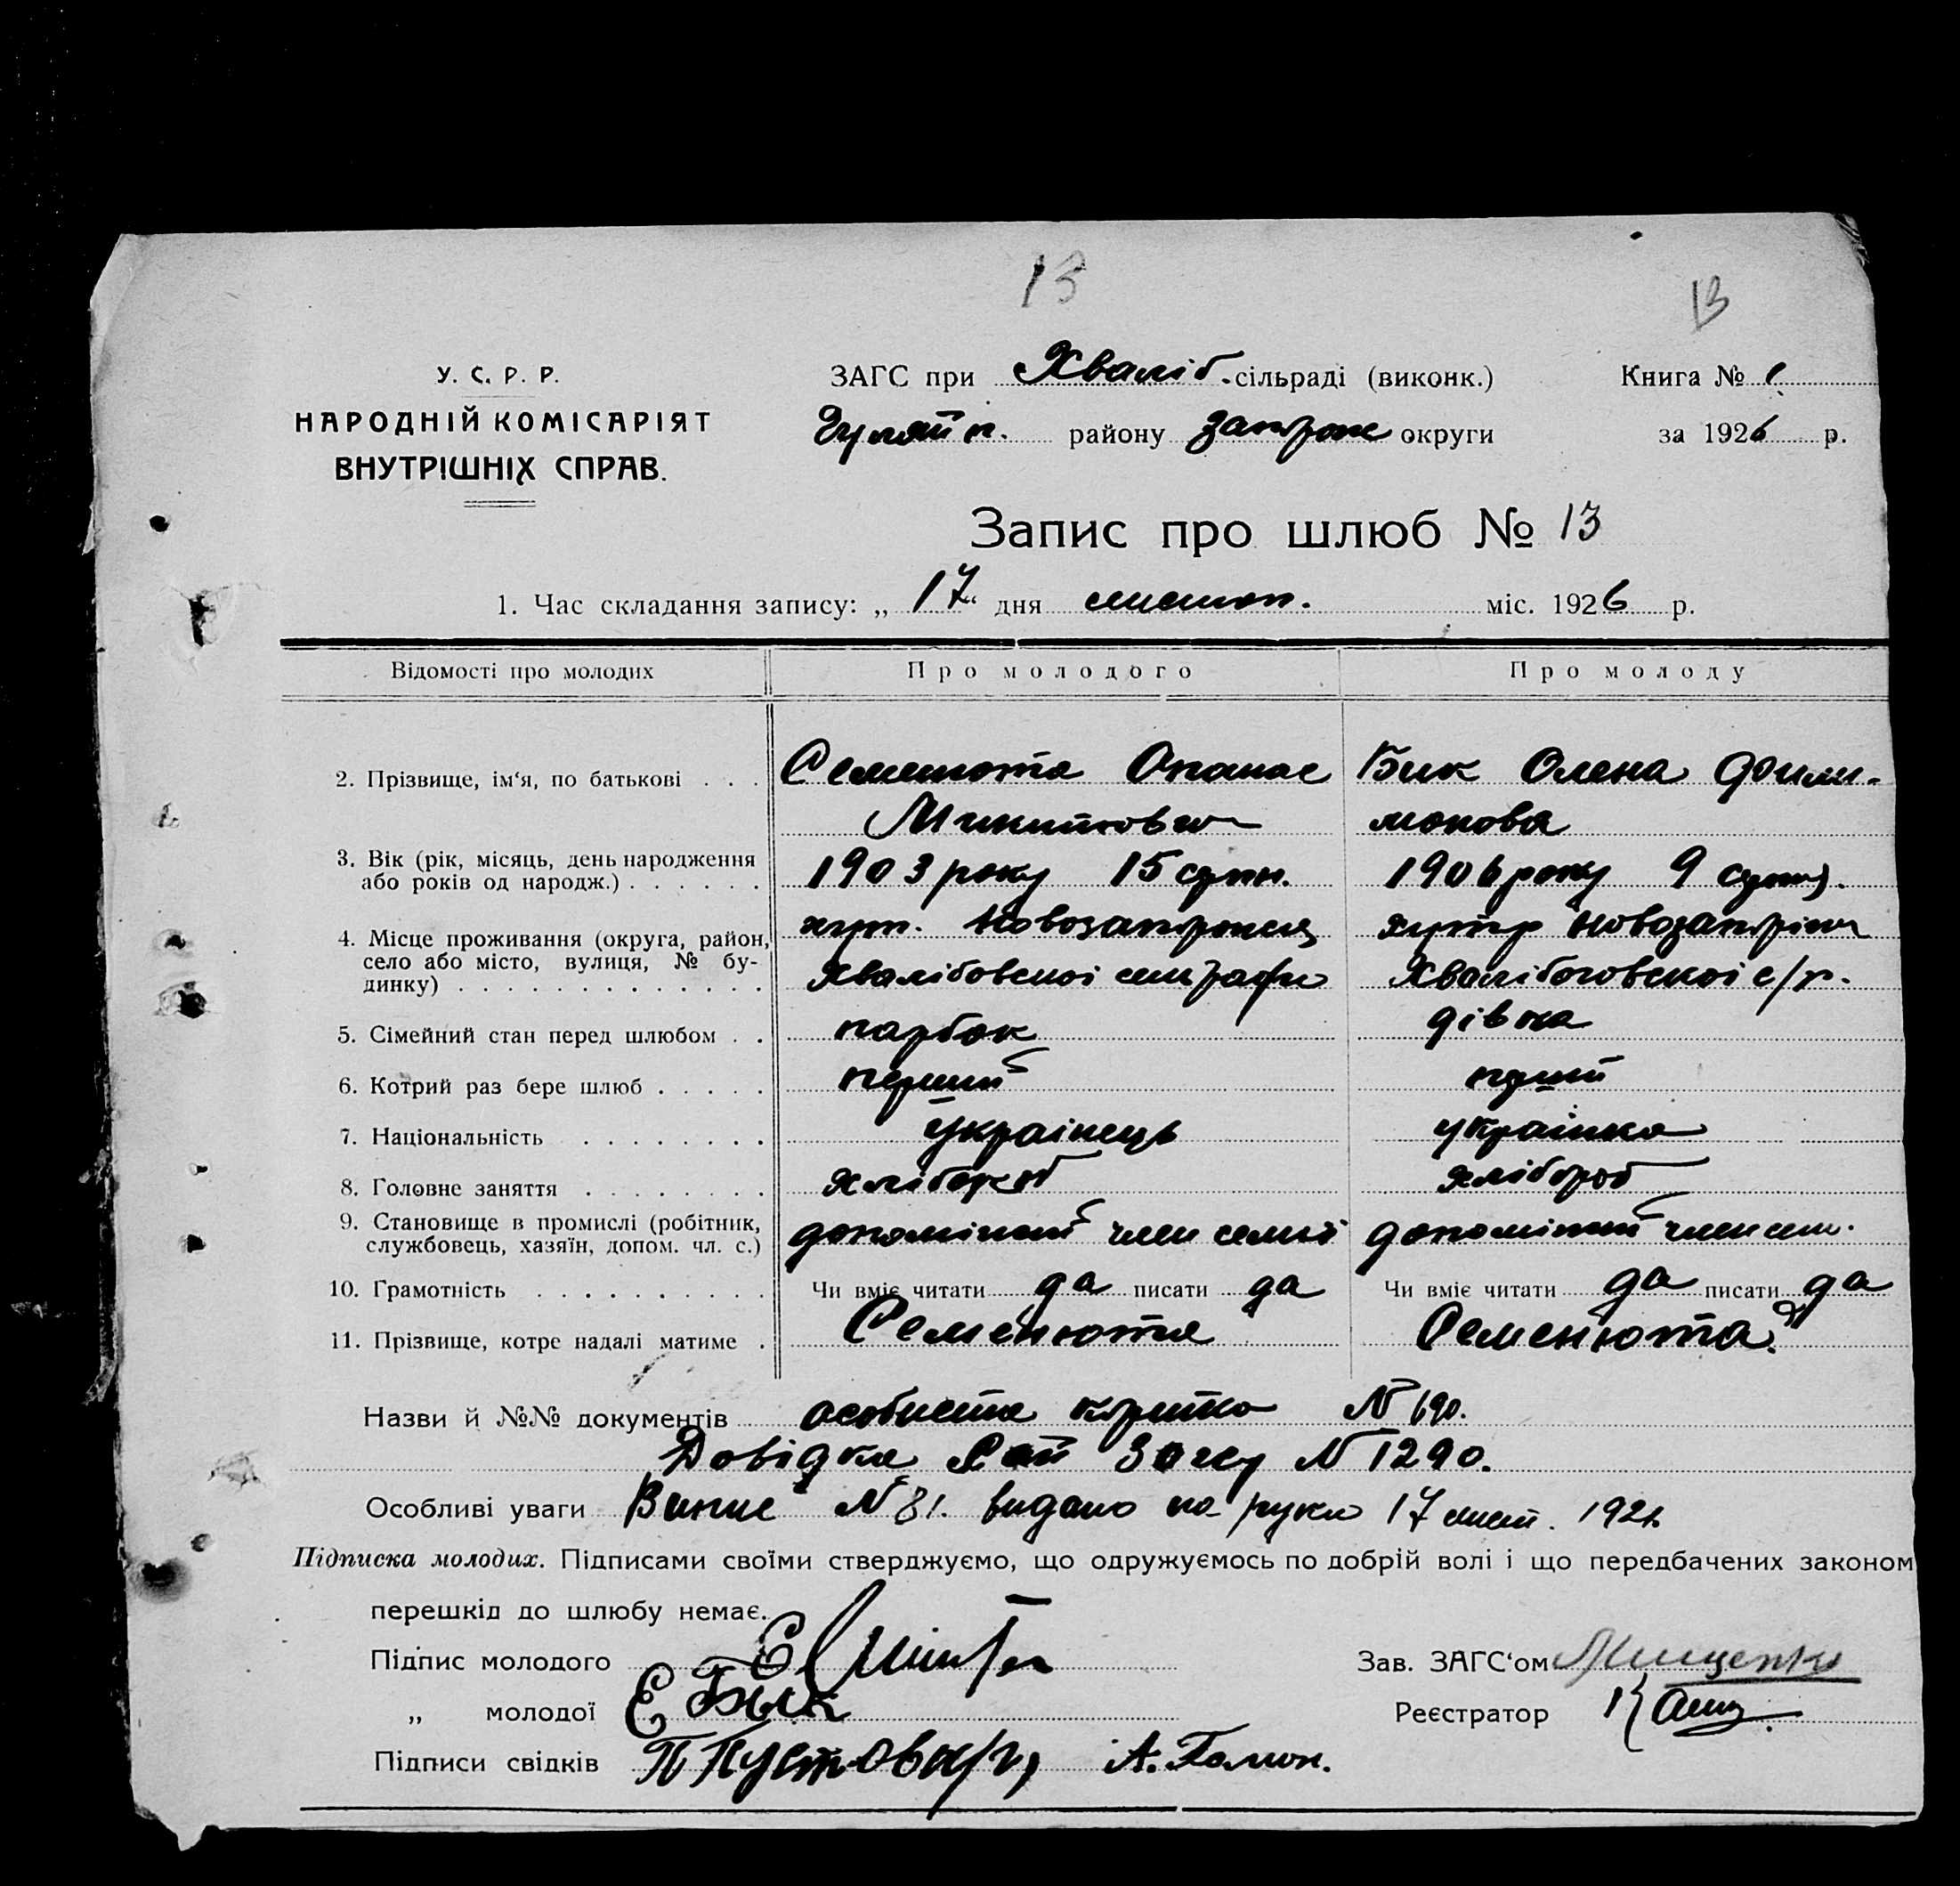 13
13
У. С. Р. Р.
НАРОДНІЙ КОМІСАРІЯТ
ВНУТРІШНІХ СПРАВ.
ЗАГС при Хваліб. сільраді (виконк.)
Книга № 1
Гуляйп. району Запорож округи
за 1926 р.
Запис про шлюб № 13
1. Час складання запису: „ 17 “ дня листоп. міс. 1926 р.
Відомості про молодих
Про молодого
Про молоду
2. Прізвище, ім‘я, по батькові . . .
Семенюта Опанас
Микитович
Бик Олена Фили-
монова
3. Вік (рік, місяць, день народження
або років од народж.) . . . . . .
1903 року 15 серпн.
1906 року 9 серпн.
4. Місце проживання (округа, район,
село або місто, вулиця, № бу-
динку) . . . . . . . . . . . . .
хут. Новозапорожец
Хвалібовскоі сільради
хутір Новозапоріж
Хвалібоговскоі с/р.
5. Сімейний стан перед шлюбом . .
парбок
дівка
6. Котрий раз бере шлюб . . . . .
перший
перший
7. Національність . . . . . . . .
українець
українка
8. Головне заняття . . . . . . . .
хлібороб
хлібороб
9. Становище в промислі (робітник,
службовець, хазяїн, допом. чл. с.)
допоміжний член семьі
допоміжний член сем.
10. Грамотність . . . . . . . . . .
Чи вміє читати да писати да
Чи вміє читати да писати да
11. Прізвище, котре надалі матиме .
Семенюта
Семенюта.
Назви й №№ документів особиста картка № 690.
Довідка Рай Загсу № 1290.
Особливі уваги Випис № 81. видано на руки 17 лист. 192
Підписка молодих. Підписами своїми стверджуємо, що одружуємось по добрій волі і що передбачених законом
перешкід до шлюбу немає.
Підпис молодого
Зав. ЗАГС‘ом Мищенко
„ молодої Е Бык
Реєстратор
Підписи свідків П Пустовар А.